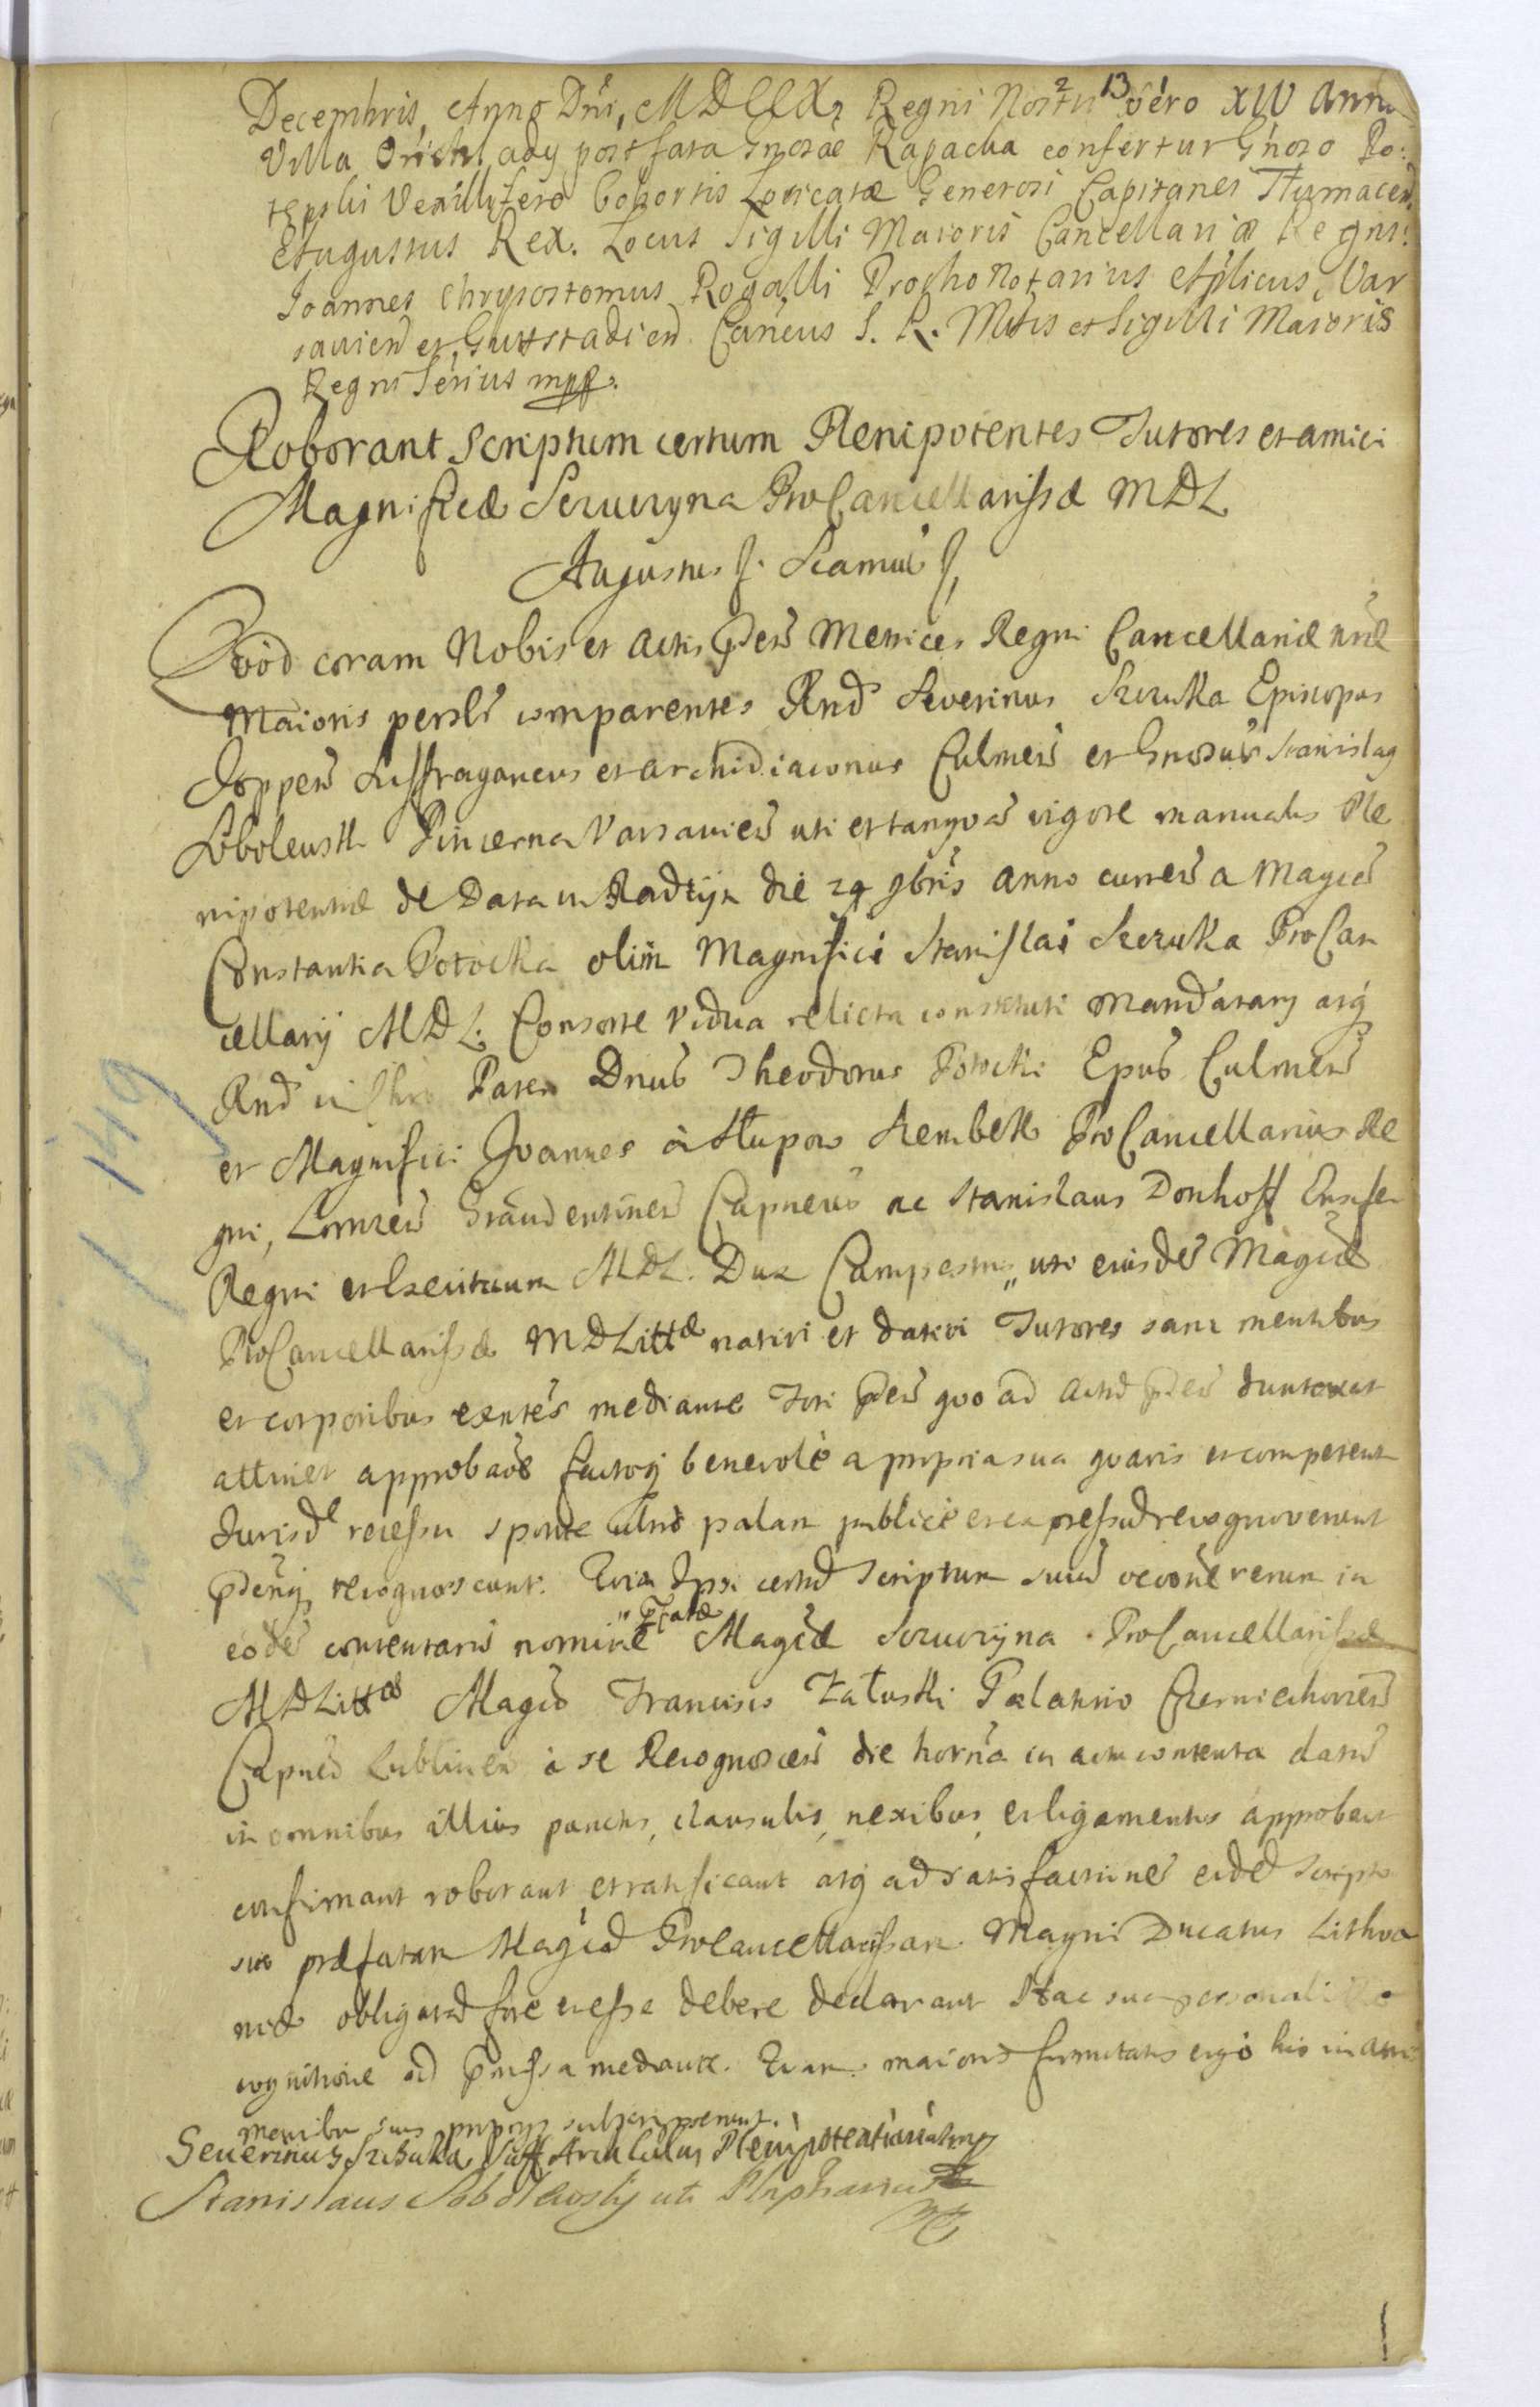 Decembris, Anno Dni, MDCCX, Regni Nostri vero XIV Anno
2 13
Villa post fata Gnosae Rapacka confertur Gnoso Po:
Vexillifero Cohortis Loricatæ Generosi Capitanei Tłumacen.
Augustus Rex. Locus Sigilli Maioris Cancellariæ Regni:
Joannes Chrysostomus Rogalli Prothonotarius Aplicus, Var
savien et Guttstadien Cancus S. R. Mtis et Sigilli Maioris
Regni Srius mpp.
Roborant Scriptum certum Plenipotentes Tutores et amici
Magnificæ Szcuczyna ProCancellarissæ MDL
Augustus S. Scamus S,
Qvod coram Nobis et Actis pten Metrices Regni Cancellariæ nræ
Maioris perslr comparentes Rnd Severinus Szczuka Episcopus
Joppen Suffraganeus et Archidiaconus Culmen et Gnosus Stanislaus
Sobolewski Pincerna Varsavien uti et tanqvam vigore manualis Ple
nipotentiæ de Data in Radzyn die 29 9bris anno curren a Magca
Constantia Potocka olim Magnifici Stanislai Szczuka ProCan
cellarij MDL. Consorte Vidua relicta constituti Mandatarij atq
Rnd in Chro Pater Dnus Theodorus Potocki Epus Culmen
et Magnifici Joannes à Słupow Szembek ProCancellarius Re
gni, Lomzen Graudentinen Capneus ac Stanislaus Donhoff Ensifer
Regni et Exercituum MDL. Dux Campestris, uti eiusdem Magcæ
ProCancellarissæ MDLittæ nativi et dativi Tutores sani mentibus
et corporibus exntes mediante Fori pten qvo ad actum pten duntaxat
attinet approbaoe factoq benevole a propria sua qvavis et competent
Jurisde recessu sponte Ultro palam publice et expresse recognoverunt
ptenq recognoscunt. Qvia Ipsi certum Scriptum suum rerum in
eodem contentarum nomine Magcæ Szczucyna ProCancellarissæ
pfatæ
MDLittæ Magco Francisco Załuski Palatino Czerniechovien
Capneo Lublinen a se Recognoscen die horna in actu contenta datum
in omnibus illius punctis, clausulis, nexibus, et ligamentis approbant
confirmant roborant et ratificant atq ad satisfactionem eidem Scripto
suo præfatam Magcam Procancellarissam Magni Ducatus Lithva
niæ obligatam fore et esse debere declarant Hac sua personali Re
cognitione ad pmissa mediante. Qvam maioris firmitatis ergo hic in actis
manibus suis proprijs subscripserunt.
Severinus Szczuka Suff Arch Culm Plenipotentiarius mp
Stanislaus Sobolewsky uti
N 221 / 149